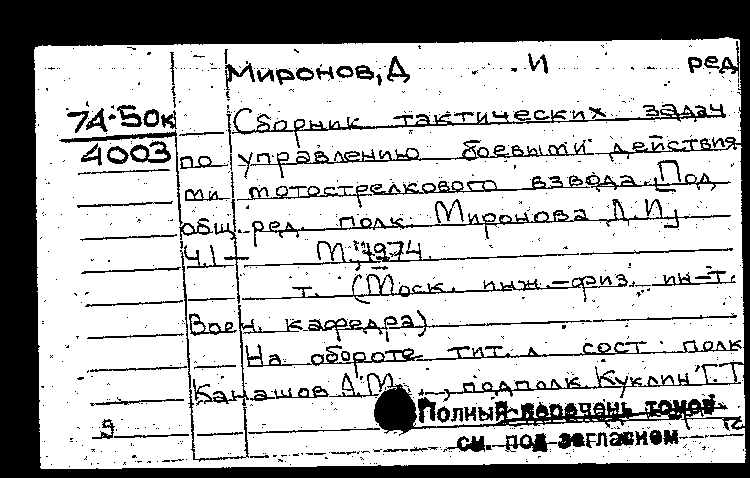 Миронов, Д И ред
74-50к Сборник тактических задач
4003 по управлению боевыми действия-
ми мотострелкового взвода. [Под
общ. ред. полк. Миронова Д.И.]
Ч.1— М., 1974.
т. (Моск. инж.-физ. ин-т.
Воен. кафедра)
На обороте тит. л. сост. полк
Канашов А.М., подполк Куклин Г.Т.
Полный перечень томов
9 см. под заглавием